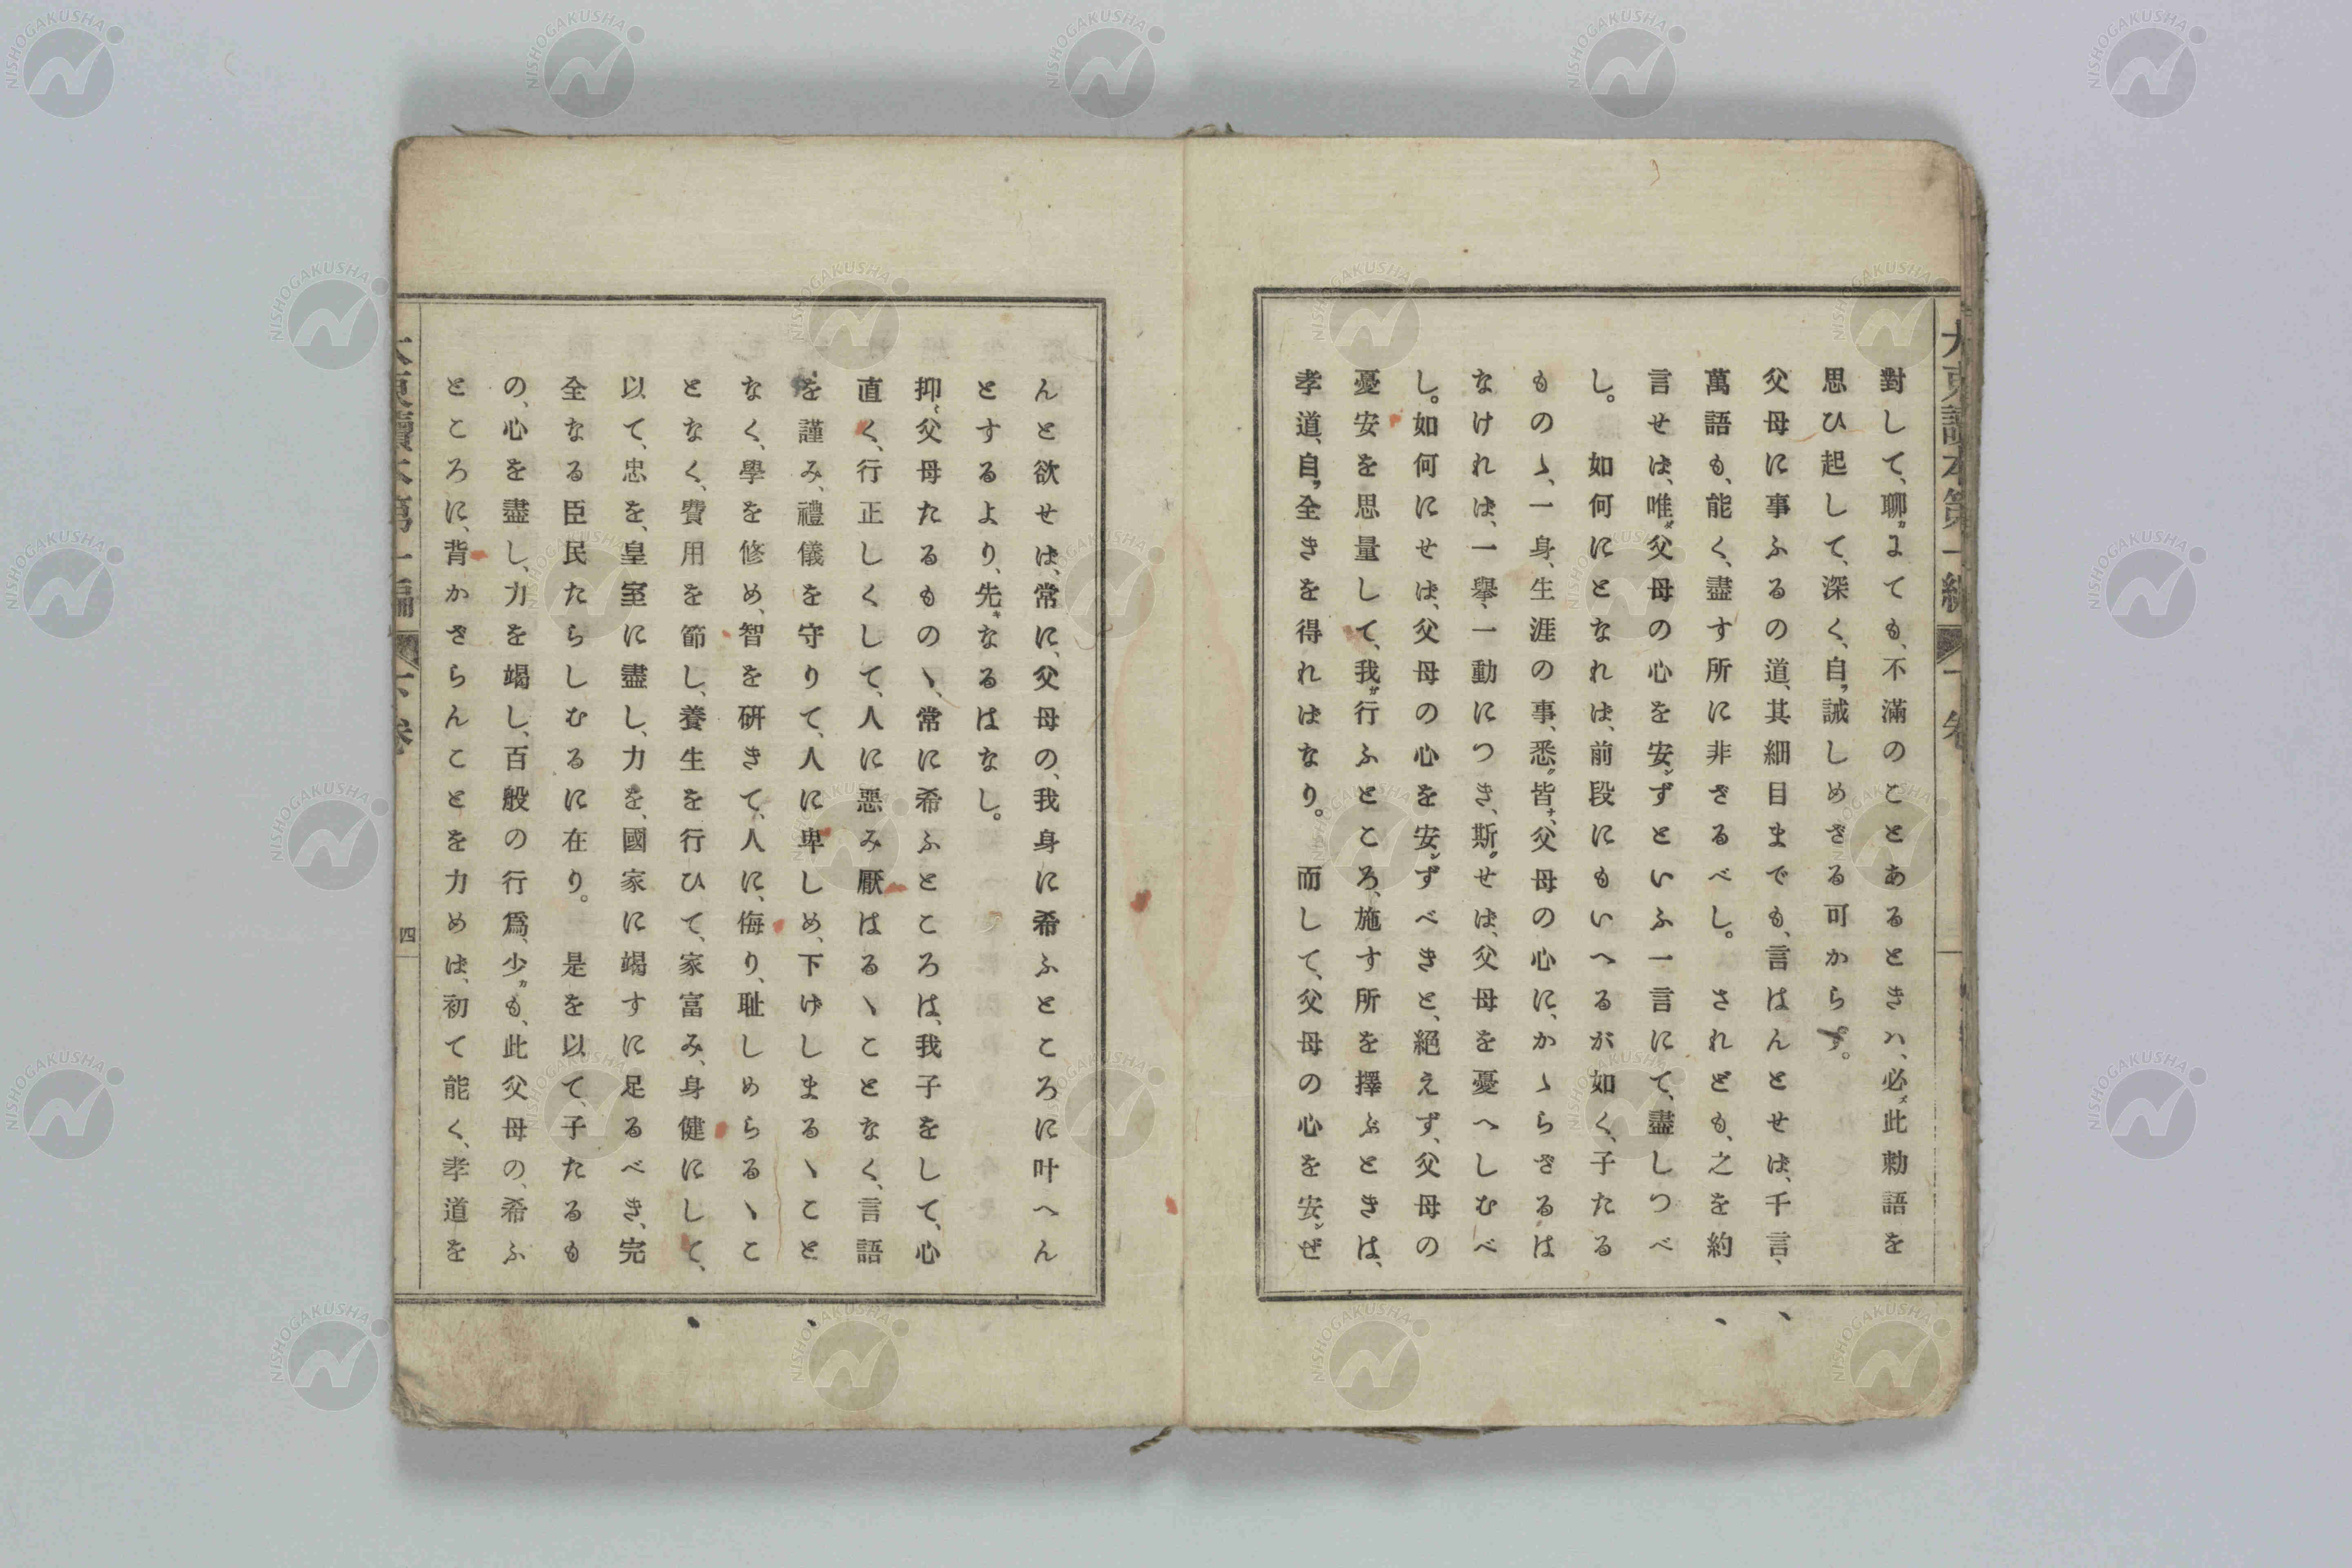 對して、聊カまても、不滿のことあるときハ、必ズ此勅語を
思ひ起して、深く、自ラ誡しめさる可からず。
父母に事ふるの道、其細目までも、言はんとせは、千言、
萬語も、能く、盡す所に非さるべし。されども、之を約
言せは、唯ダ父母の心を安ンずといふ一言にて、盡しつべ
し。如何にとなれは、前段にもいへるが如く、子たる
ものゝ、一身、生涯の事、悉ク皆ナ、父母の心に、かゝらさるは
なけれは、一擧、一動につき、斯クせは、父母を憂へしむべ
し。如何にせは、父母の心を安ンずべきと、絕えず、父母の
憂安を思量して、我ガ行ふところ、施す所を擇ぶときは、
孝道、自ラ全きを得れはなり。而して、父母の心を安ンぜ
んと欲せは、常に、父母の、我身に希ふところに叶へん
とするより、先キなるはなし。
抑〻父母たるものゝ、常に希ふところは、我子をして、心
直く、行正しくして、人に惡み厭はるゝことなく、言語
を謹み、禮儀を守りて、人に卑しめ、下げしまるゝこと
なく、學を修め、智を硏きて、人に、侮り、耻しめらるゝこ
となく、費用を節し、養生を行ひて、家富み、身健にして、
以て、忠を、皇室に盡し、力を、國家に竭すに足るべき、完
全なる臣民たらしむるに在り。是を以て、子たるも
の、心を盡し、力を竭し、百般の行爲、少カも、此父母の、希ふ
ところに、背かさらんことを力めは、初て能く、孝道を
大東讀本第一編
下卷
四
NISHOGAKUSHA